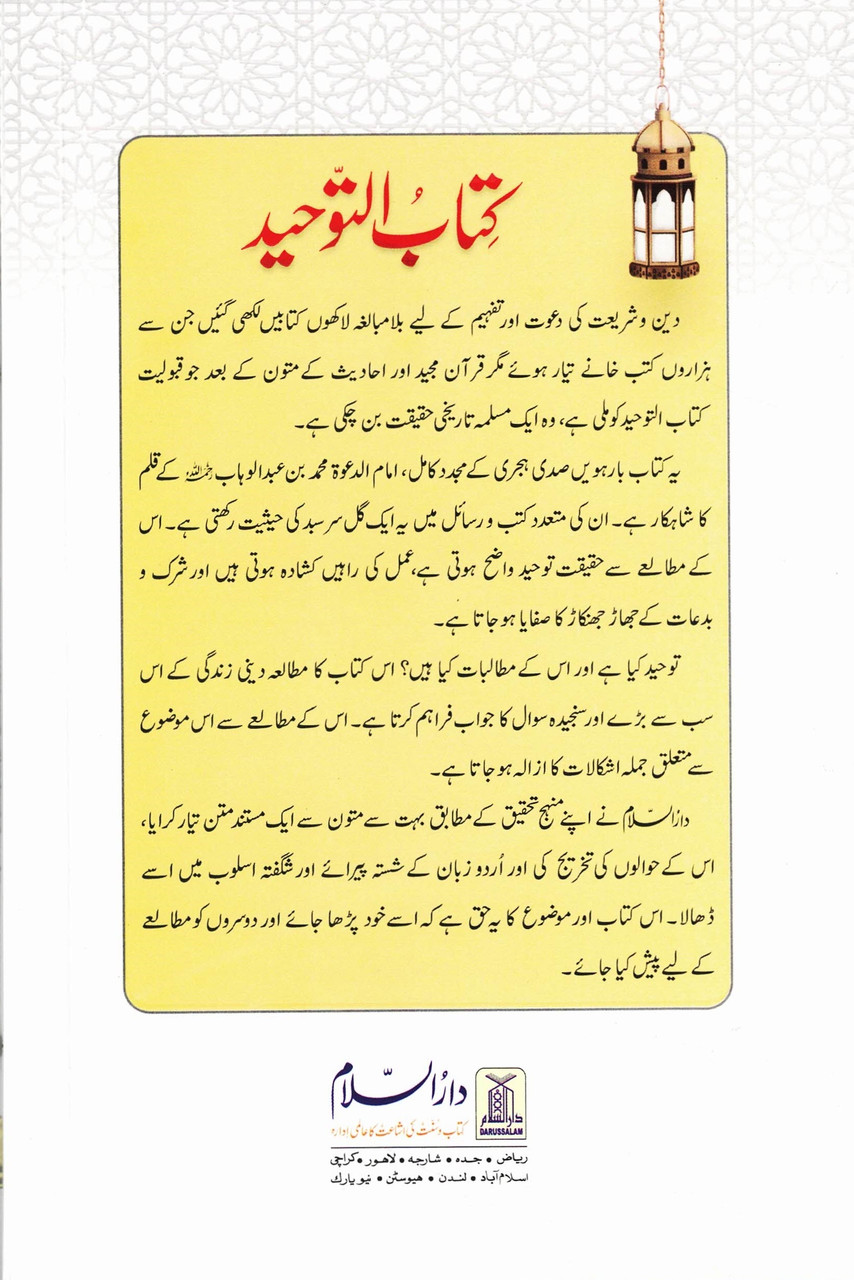 کِتابُ التّوحید
دین و شریعت کی دعوت اور تفہیم کے لیے بلا مبالغہ لاکھوں کتابیں لکھی گئیں جن سے
ہزاروں کتب خانے تیار ہوئے مگر قرآن مجید اور احادیث کے متون کے بعد جو قبولیت
کتاب التوحید کو ملی ہے، وہ ایک مسلمہ تاریخی حقیقت بن چکی ہے۔
یہ کتاب بارہویں صدی ہجری کے مجدد کامل، امام الدعوۃ محمد بن عبدالوہاب رحمہ اللہ کے قلم
کا شاہکار ہے۔ ان کی متعدد کتب و رسائل میں یہ ایک گل سرسبد کی حیثیت رکھتی ہے۔ اس
کے مطالعے سے حقیقت توحید واضح ہوتی ہے، عمل کی راہیں کشادہ ہوتی ہیں اور شرک و
بدعات کے جھاڑ جھنکاڑ کا صفایا ہو جاتا ہے۔
توحید کیا ہے اور اس کے مطالبات کیا ہیں؟ اس کتاب کا مطالعہ دینی زندگی کے اس
سب سے بڑے اور سنجیدہ سوال کا جواب فراہم کرتا ہے۔ اس کے مطالعے سے اس موضوع
سے متعلق جملہ اشکالات کا ازالہ ہو جاتا ہے۔
دارُالسّلام نے اپنے منہج تحقیق کے مطابق بہت سے متون سے ایک مستند متن تیار کرایا،
اس کے حوالوں کی تخریج کی اور اُردو زبان کے شستہ پیرائے اور شگفتہ اسلوب میں اسے
ڈھالا۔ اس کتاب اور موضوع کا یہ حق ہے کہ اسے خود پڑھا جائے اور دوسروں کو مطالعے
کے لیے پیش کیا جائے۔
دارُالسّلام
کتاب و سنت کی اشاعت کا عالمی ادارہ
دارالسلام
DARUSSALAM
ریاض • جدہ • شارجہ • لاہور • کراچی
اسلام آباد • لندن • ہیوسٹن • نیو یارک